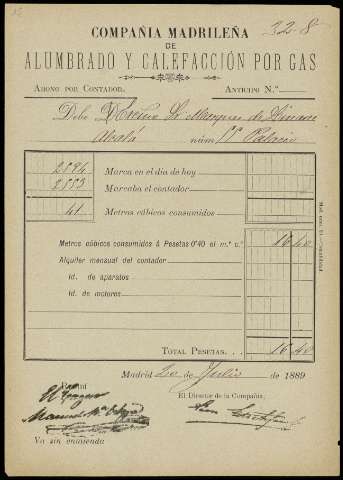 COMPAÑIA MADRILEÑA 328
DE
ALUMBRADO Y CALEFACCIÓN POR GAS
ABONO POR CONTADOR. ANTICIPO N.º
Debe Excmo Sr Marques de Linares
Alcalá núm 17 Palacio
2594 Marca en el día de hoy
2553 Marcaba el contador
41 Metros cúbicos consumidos
Metros cúbicos consumidos á Pesetas 0'40 el m.³ 16 40
Alquiler mensual del contador
Id. de aparatos
Id. de motores
TOTAL PESETAS. 16 40
Madrid 20 de Julio de 1889
Recibí El Director de la Compañía,
Va sin enmienda